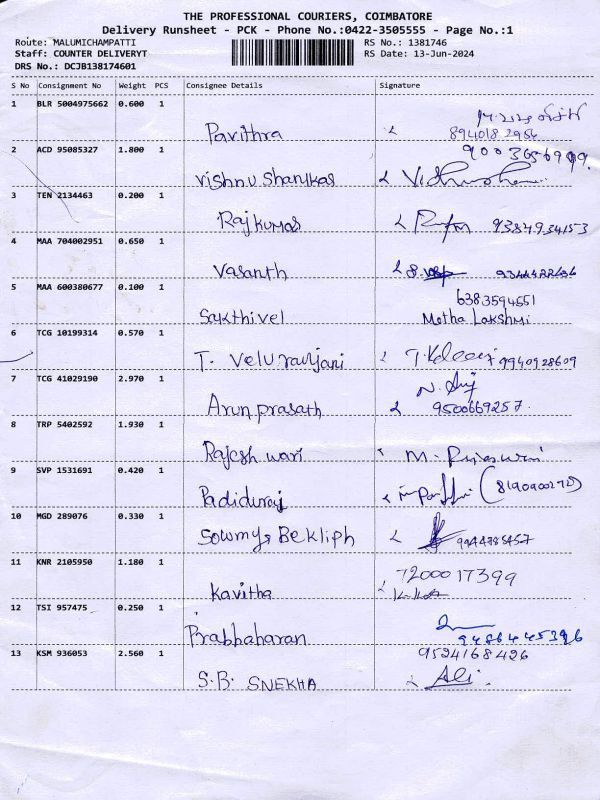 THE PROFESSIONAL COURIERS, COIMBATORE
Delivery Runsheet - PCK - Phone No.:0422-3505555 - Page No.:1
Route: MALUMICHAMPATTI RS No.: 1381746
Staff: COUNTER DELIVERYT RS Date: 13-Jun-2024
DRS No.: DCJB138174601
S No Consignment No Weight PCS Consignee Details Signature
1 BLR 5004975662 0.600 1
Pavithra 8940182964
2 ACD 95085327 1.800 1 9003656999.
Vishnu Shankar
3 TEN 2134463 0.200 1
Rajkumar 9384934153
4 MAA 704002951 0.650 1
Vasanth
5 MAA 600380677 0.100 1 6383594551
Sakthivel Metha Lakshmi
6 TCG 10199314 0.570 1
T. Veluranjani 9940928609
7 TCG 41029190 2.970 1
Arun prasath 9500669257.
8 TRP 5402592 1.930 1
Rajesh wari M.
9 SVP 1531691 0.420 1
Padiduraj
10 MGD 289076 0.330 1
Sowmya Bekliph 9944785457
11 KNR 2105950 1.180 1 7200017399
Kavitha
12 TSI 957475 0.250 1
Prabhaharan 9486445396
13 KSM 936053 2.560 1 9524168426
S.B. SNEKHA Ali.